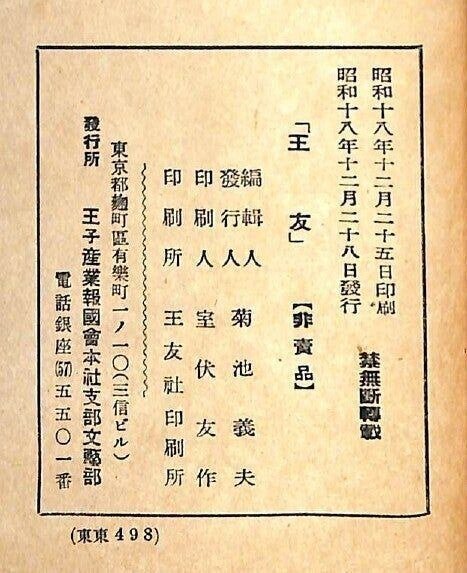 昭和十八年十二月二十五日印刷
昭和十八年十二月二十八日發行
禁無斷轉載
「王友」
【非賣品】
編輯人
發行人
菊池義夫
印刷人
室伏友作
印刷所
王友社印刷所
東京都麹町區有樂町一ノ一〇(三信ビル)
發行所
王子産業報國會本社支部文藝部
電話銀座(57)五五〇一番
(東東498)